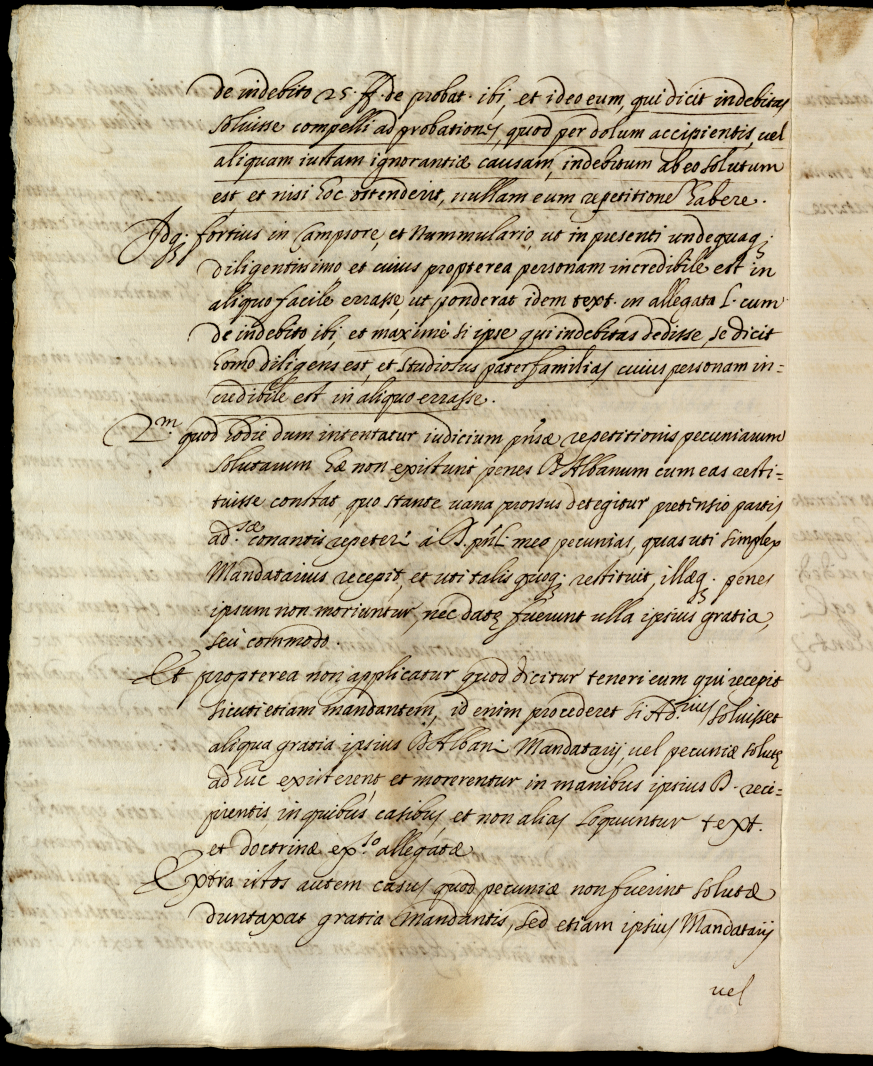 de indebito 25. ff. de probat. ibi, et ideo eum, qui dicit indebitas
soluisse compelli ad probationes, quod per dolum accipientis, uel
aliquam iustam ignorantiæ causam, indebitum ab eo solutum
est et nisi hoc ostenderit, nullam eum repetitione habere.
Idq. fortius in Campsore, et Nummulario, ut in presenti undequaq.
diligentissimo et cuius propterea personam incredibile est in
aliquo facile errasse, ut ponderat idem text. in allegata l. cum
de indebito ibi, et maximè si ipse qui indebitas dedisse, se dicit
homo diligens est, et studiosus paterfamilias cuius personam in=
credibile est in aliquo errasse.
2.m quod hodie dum intentatur iudicium pñsæ repetitionis pecuniarum
solutarum hæ non existunt penes D. Albanum cum eas resti=
tuisse constat, quo stante uana prorsus detegitur pretensio partis
ad.sæ conantis repeteri à D. pñli meo pecunias, quas uti simplex
Mandatarius recepit, et uti talis quoq. restituit, illæq. penes
ipsum non moriuntur, nec datę fuerunt ulla ipsius gratia,
seù commodo.
Et propterea non applicatur quod dicitur teneri eum qui recepit
sicuti etiam mandantem, id enim procederet si Ad.rius soluisset
aliqua gratia ipsius D. Albani Mandatarij, uel pecuniæ solutę
adhuc existerent, et morerentur in manibus ipsius D. reci=
pientis, in quibus casibus, et non alias loquuntur text.
et doctrinæ ex.so allegatæ
Extra istos autem casus quod pecuniæ non fuerint solutæ
duntaxat gratia Mandantis, sed etiam ipsius Mandatarij
uel